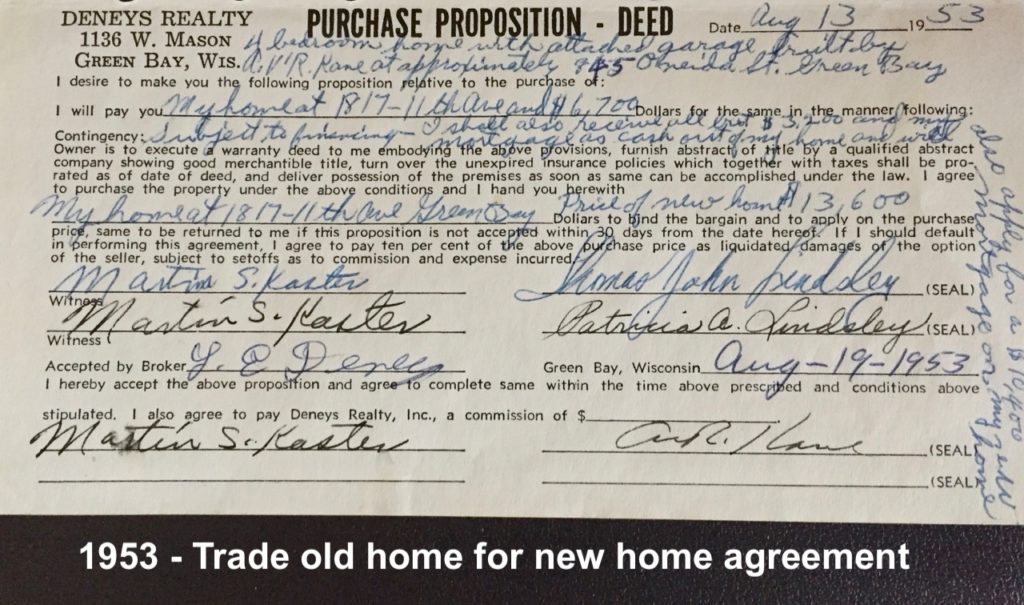 DENEYS REALTY
1136 W. MASON
GREEN BAY, WIS.
PURCHASE PROPOSITION - DEED
Date Aug 13 1953
4 bedroom home with attached garage built by
A.R. Kane at approximately 845 Oneida St. Green Bay
I desire to make you the following proposition relative to the purchase of:
I will pay you My home at 1817-11th Ave and $6,700 Dollars for the same in the manner following:
Contingency: Subject to financing - I shall also receive all but $3,200 and my
mortgage as cash out of my home and will
also apply for a $10,400
mortgage on my new
home
Owner is to execute a warranty deed to me embodying the above provisions, furnish abstract of title by a qualified abstract
company showing good merchantible title, turn over the unexpired insurance policies which together with taxes shall be pro-
rated as of date of deed, and deliver possession of the premises as soon as same can be accomplished under the law. I agree
to purchase the property under the above conditions and I hand you herewith
My home at 1817-11th Ave Green Bay Price of new home $13,600
Dollars to bind the bargain and to apply on the purchase
price, same to be returned to me if this proposition is not accepted within 30 days from the date hereof. If I should default
in performing this agreement, I agree to pay ten per cent of the above purchase price as liquidated damages of the option
of the seller, subject to setoffs as to commission and expense incurred.
Martin S. Kaster Thomas John Lindsley (SEAL)
Witness
Martin S. Kaster Patricia A. Lindsley (SEAL)
Witness
Accepted by Broker L. E. Deneys Green Bay, Wisconsin Aug-19-1953
I hereby accept the above proposition and agree to complete same within the time above prescribed and conditions above
stipulated. I also agree to pay Deneys Realty, Inc., a commission of $
Martin S. Kaster A.R. Kane (SEAL)
(SEAL)
1953 - Trade old home for new home agreement